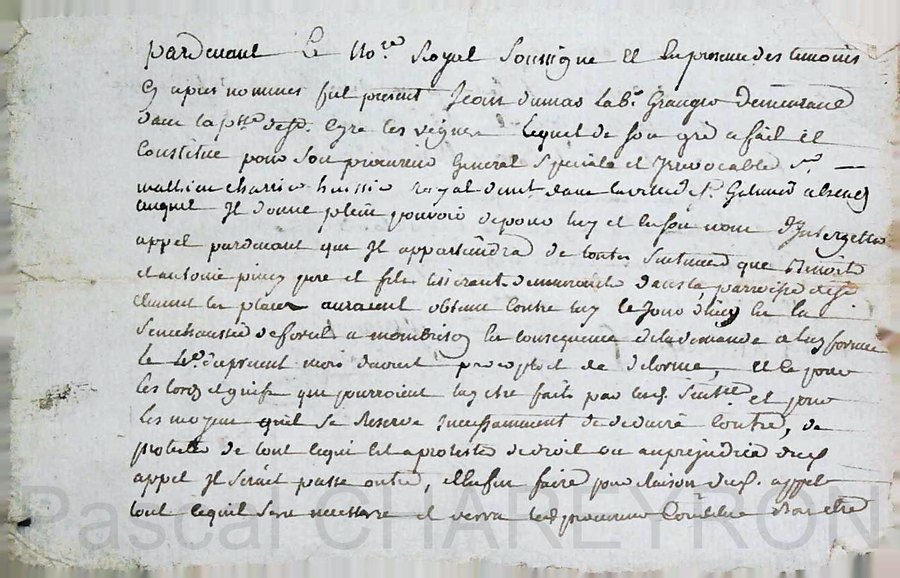 pardevant Le No.re Royal Soussigné Et En presence des temoins
Cy apres nommes fut present Jean dumas Lab.r Granger demeurant
dans la p.sse de S.t Cyre les vignes Lequel de son gré a fait Et
Constitué pour son procureur General Speciale et Irrevocable S.r
mathieu charrier huissier royal dem.t dans la ville de S.t Galmier absent
auquel Il donne plein pouvoir de pour luy et En son nom d'Interjetter
appel pardevant qui Il appartiendra de toutes Sentences que Benoit
et antoine pere et fils tisserants demeurants dans la parroisse de S.t
Laurent les places auraient obtenu contre luy le Jour d'hier En La
Senechaussée de forets a montbrison En consequence de la demande a luy formée
le du present mois devant Et Ce pour
les torts et griefs qui pourroient luy etre faits par Lad. Sent.ce et pour
Les moyens quil Se Reserve Incessamment de deduire Contre, de
protester de tout Cequi Est a protester de droit ou au prejudice dud.
appel Il Seroit passé outre, et Enfin faire pour raison dud. appel
tout Cequil Sera necessaire et verra led. procureur Constitué bon etre
Pascal CHAREYRON